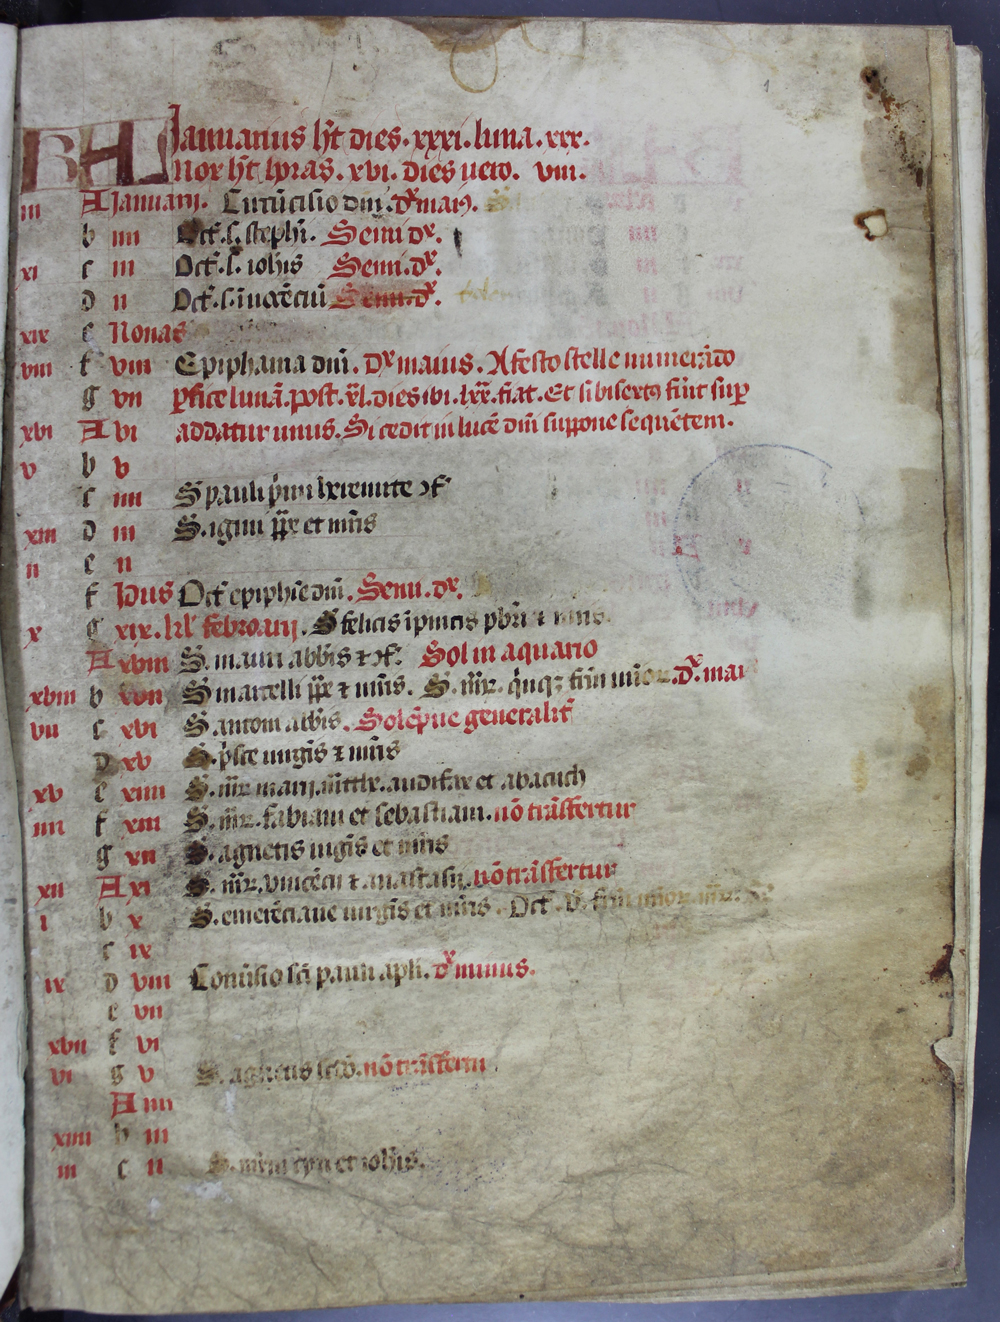 KL Januarius ht dies. xxxi. luna. xxx.
Nox ht horas. xvi. dies vero. viii.
iii A Januarii. Circūcisio dnj. dx maiꝰ.
b iiii Oct. s. stephi. Semi dx.
xi c iii Oct. s. iohis Semi. dx.
d ii Oct. s. inocēciū Semi. dx.
xix e Nonas
viii f viii Epiphania dnī. dx maius. A festo stelle numerādo
g vii pfice lunā. post. xl. dies ibi. lxx. fiat. Et si bisextꝰ fūit sup
xvi A vi addatur unus. Si cedit in lucē dnī suppone sequētem.
v b v
c iiii S pauli pimi heremite ɔf
xiii d iii S. igini pp et mris
ii e ii
f Idus Oct epiphie dnī. Semi. dx.
x g xix. kl' februarij. S felicis ī pincis pbri ⁊ mris.
A xviii S. mauri abbis ⁊ ɔf. Sol in aquario
xviii b xvii S marcelli pp ⁊ mris. S. mr. qnqꝫ frm dx. mai
vii c xvi S. antoni abbis. Solepne generalit
d xv S. pisce uirgis ⁊ mris
xv e xiiii S. mr marij. mrthe. audifax et abacuch
iiii f xiii S. mr. fabiani et sebastiani. nō trāsfertur
g xii S. agnetis uigis et mris
xii A xi S. mr. vincēcii ⁊ anastasij. nō trāsfertur
i b x S. emerēciane uirgis et mris. Oct.
c ix
ix d viii Conūsio sci pauli apli. dx minus.
e vii
xvii f vi
vi g v S. agnetis scdo. nō trāsfertur
A iiii
xiiii b iii
iii c ii S. cyri et iohis.